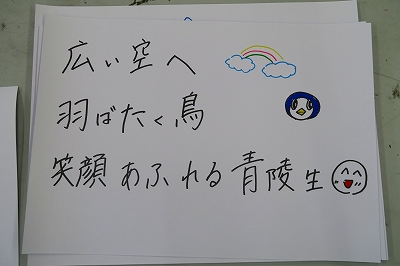 広い空へ
羽ばたく鳥
笑顔あふれる青陵生